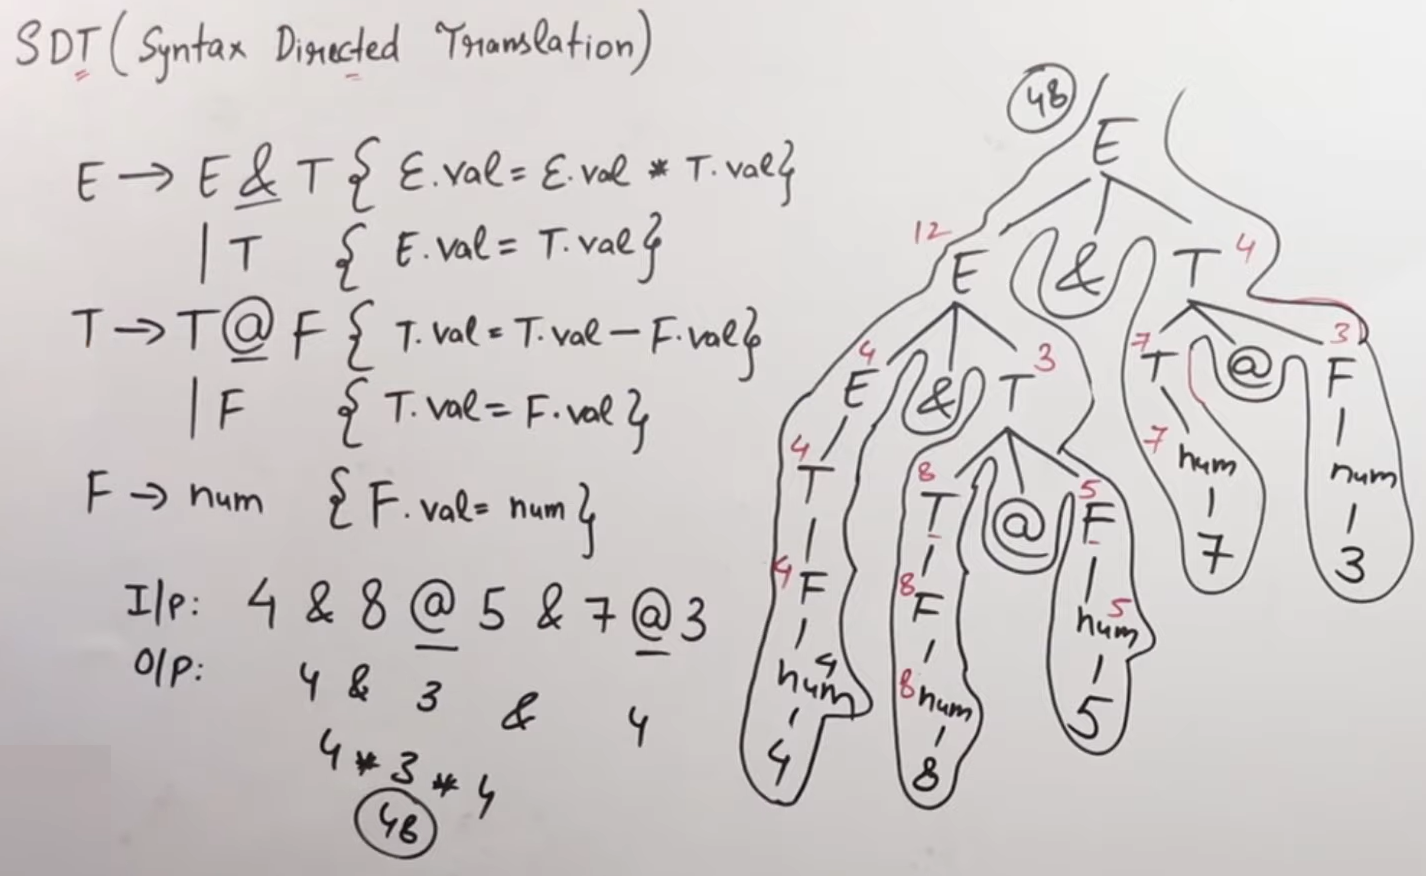 SDT (Syntax Directed Translation)
E → E & T { E.val = E.val * T.val}
| T { E.val = T.val}
T → T @ F { T.val = T.val - F.val}
| F { T.val = F.val }
F → num { F.val = num }
I/p: 4 & 8 @ 5 & 7 @ 3
O/p:
4 & 3 & 4
4 * 3 * 4
48
48
E
12 E & T 4
4 E & T 3 7 T @ F 3
4 T 8 T @ F 5 7 num num
4 F 8 F num 5 7 3
num 4 8 num 5
4 8